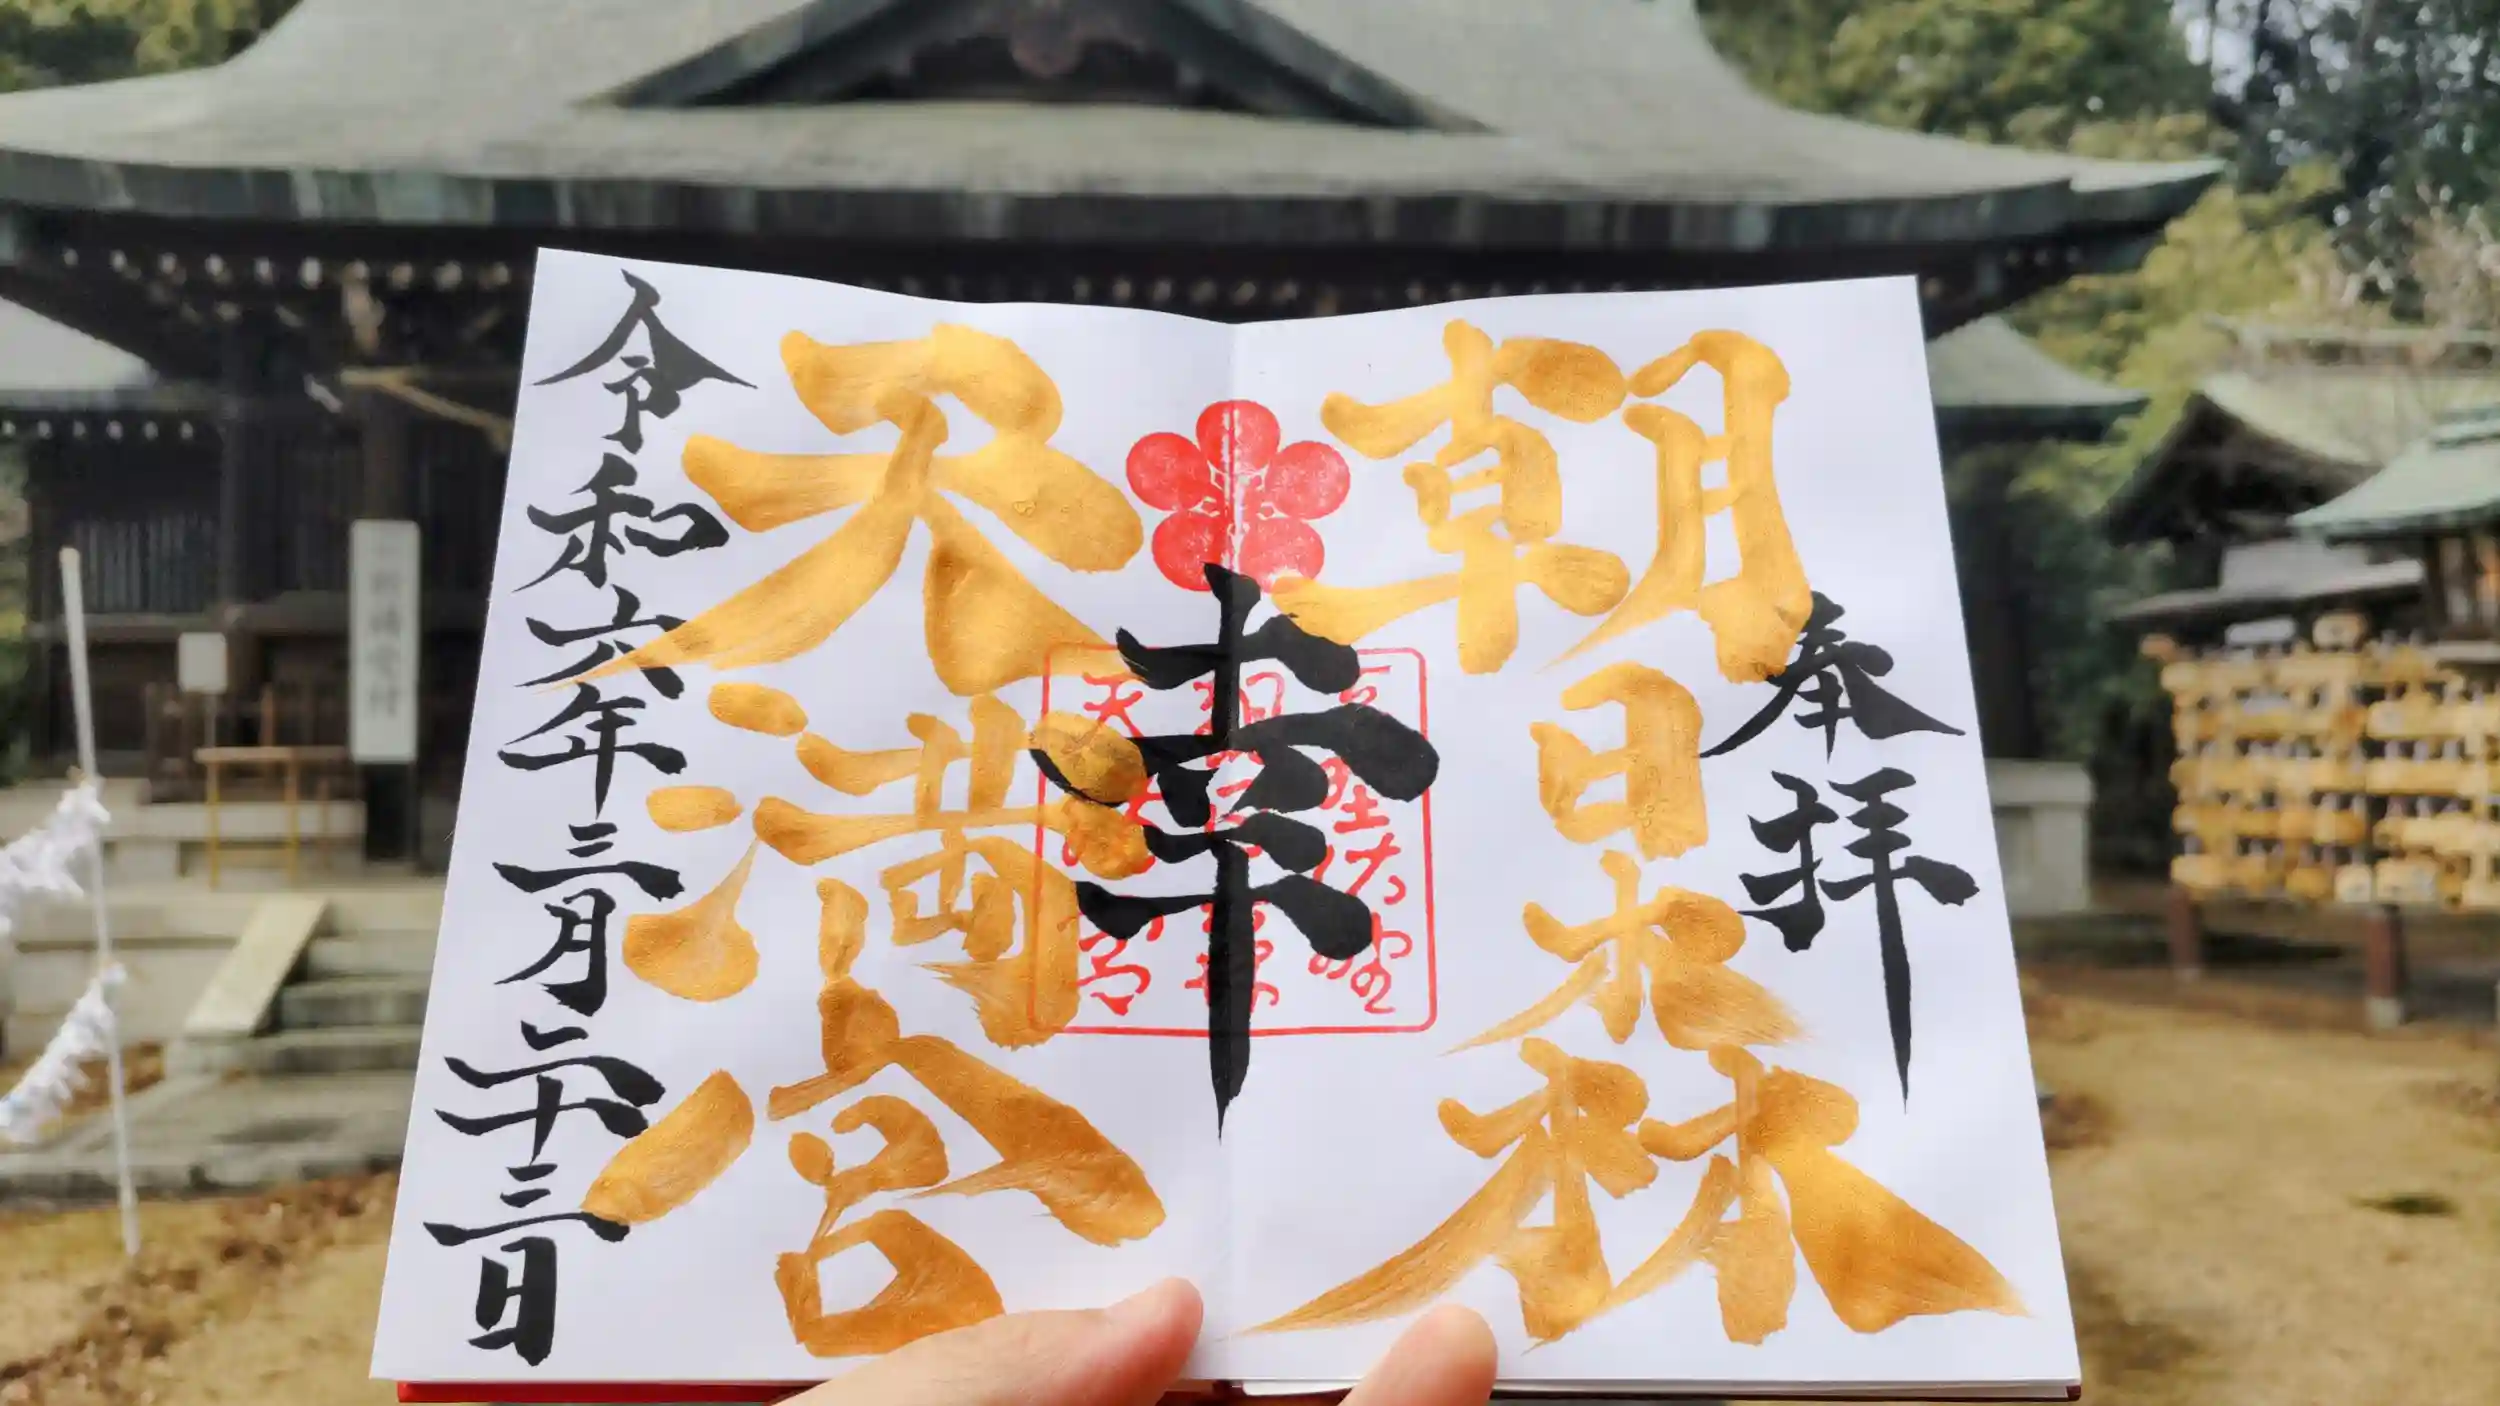 奉拝
朝日森
幸
天満宮
令和六年三月二十三日